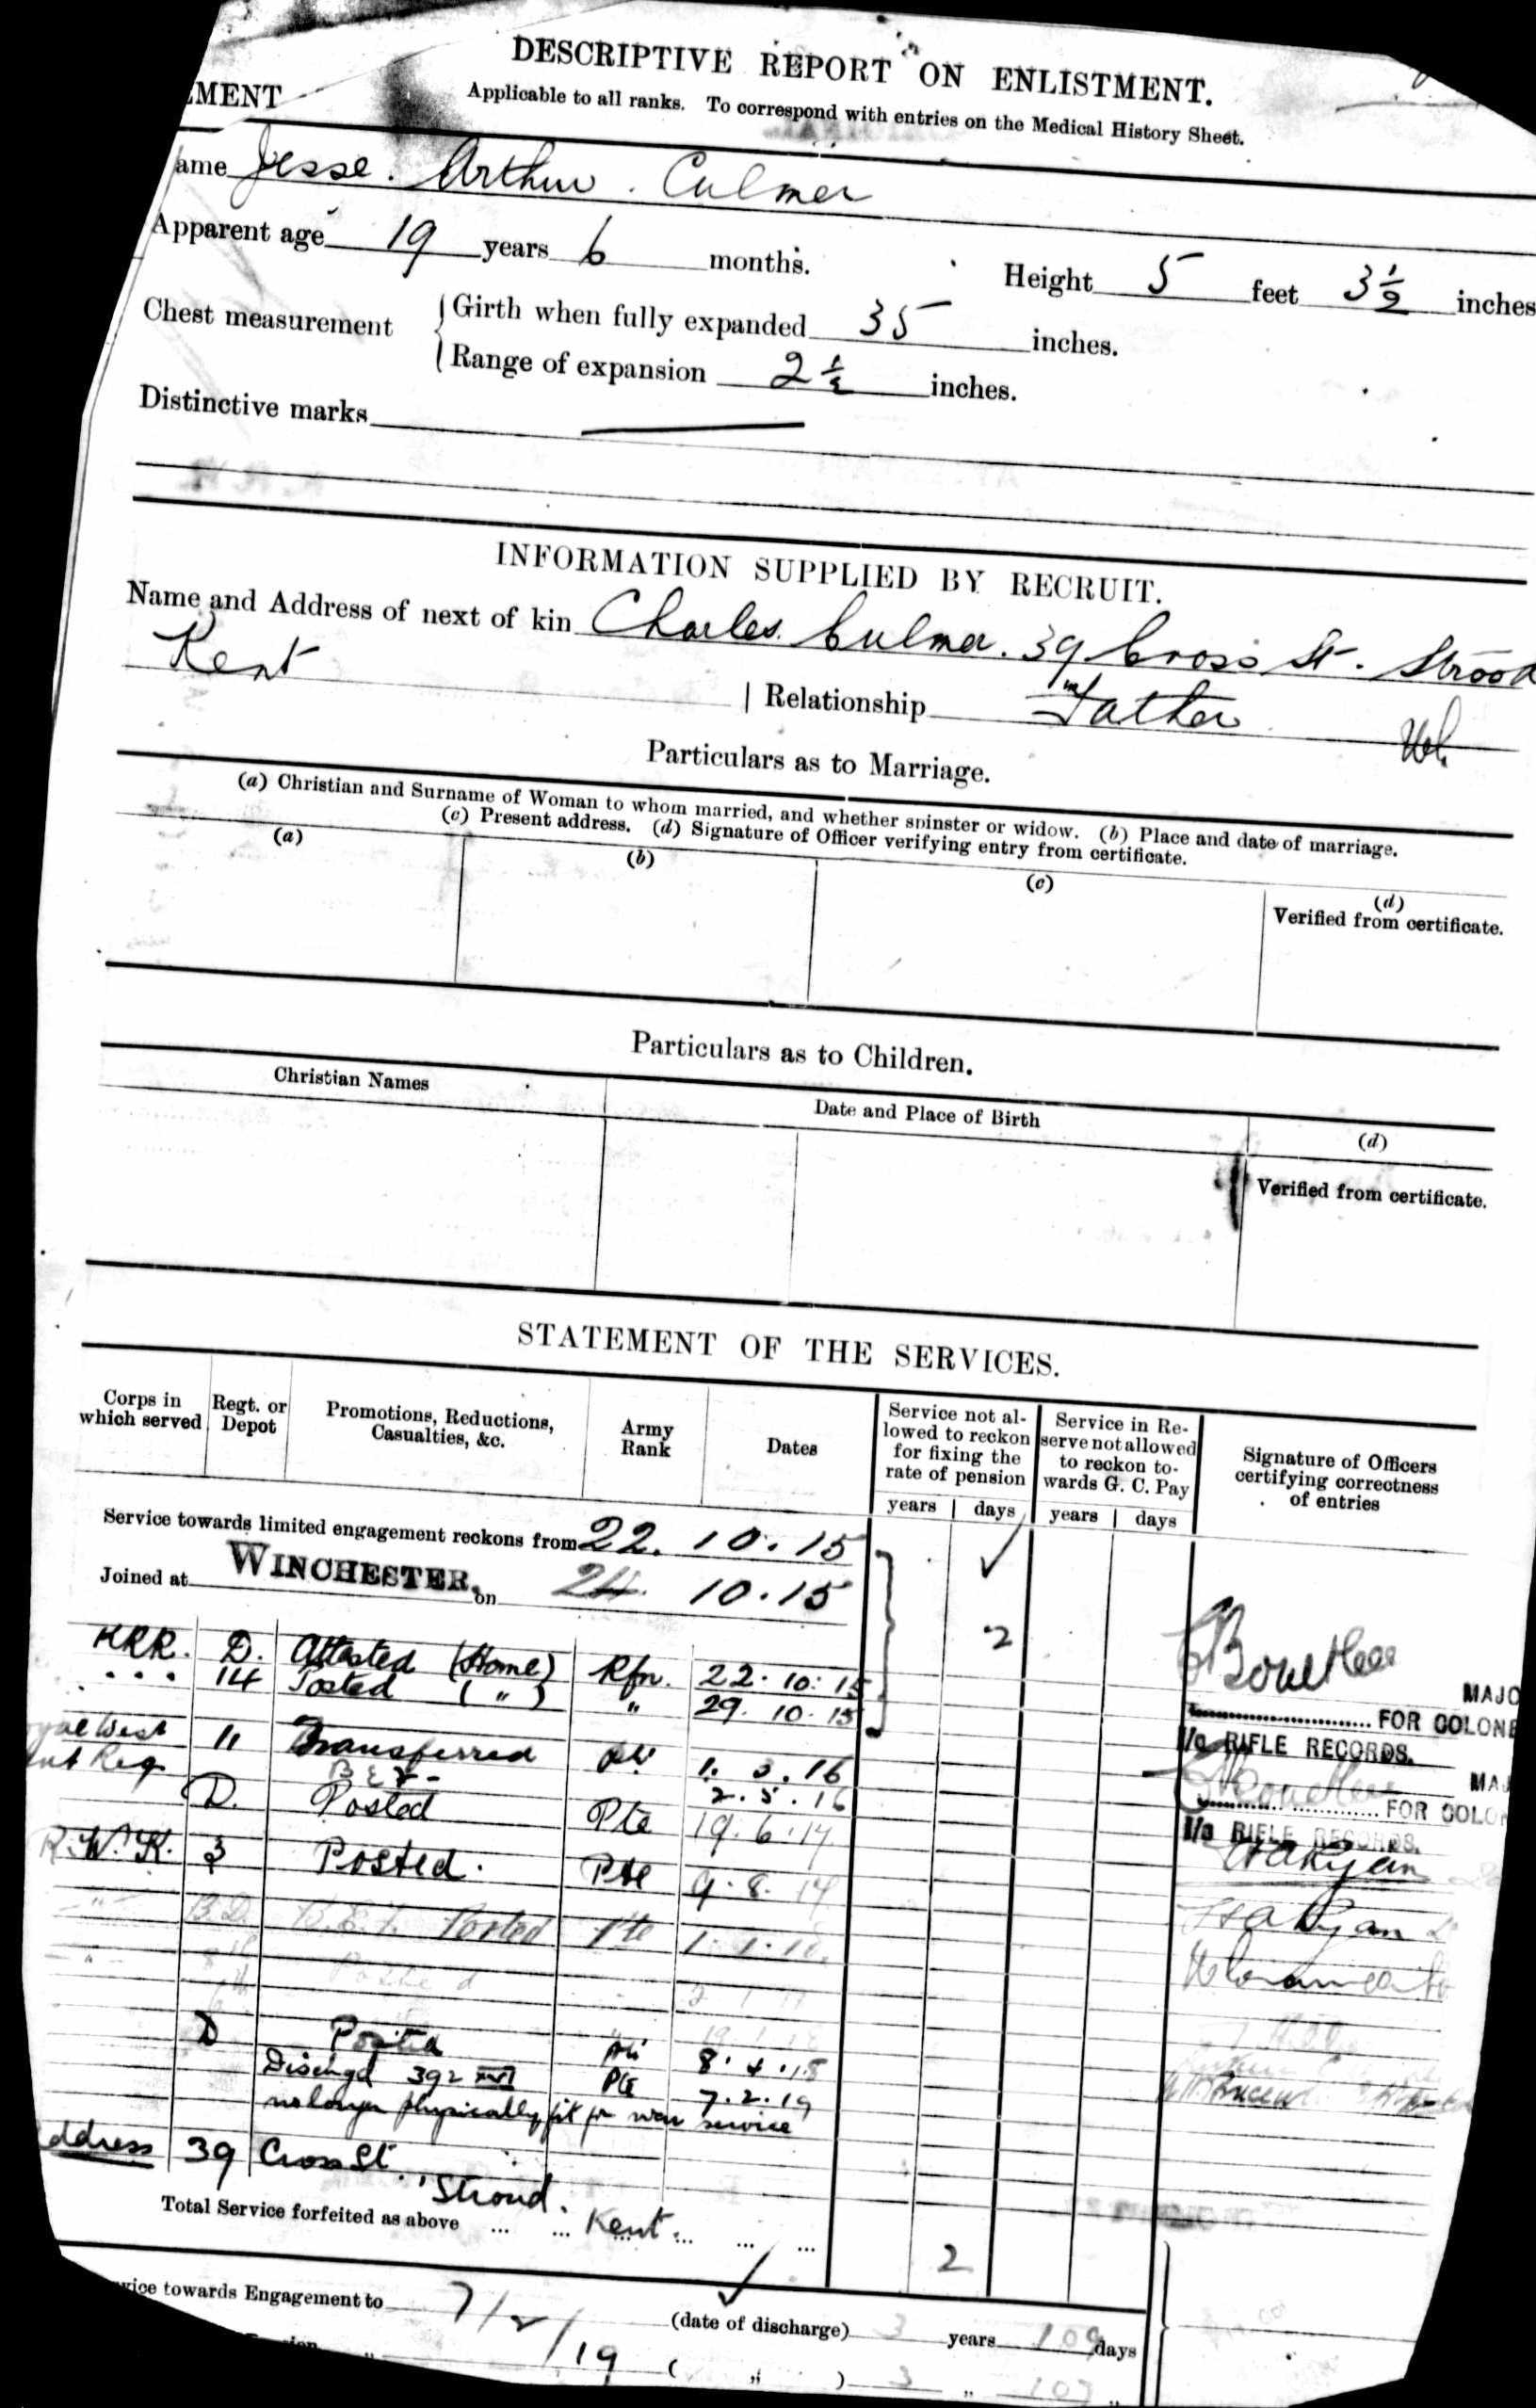 DESCRIPTIVE REPORT ON ENLISTMENT.
EMENT
Applicable to all ranks. To correspond with entries on the Medical History Sheet.
ame Jesse. Arthur. Culmer
Apparent age 19 years 6 months.
Height 5 feet 3½ inches
Chest measurement
Girth when fully expanded 35 inches.
Range of expansion 2½ inches.
Distinctive marks
INFORMATION SUPPLIED BY RECRUIT.
Name and Address of next of kin Charles Culmer. 39 Cross St. Strood
Kent
Relationship Father
Particulars as to Marriage.
(a) Christian and Surname of Woman to whom married, and whether spinster or widow. (b) Place and date of marriage.
(c) Present address. (d) Signature of Officer verifying entry from certificate.
(a) (b) (c) (d)
Verified from certificate.
Particulars as to Children.
Christian Names
Date and Place of Birth
(d)
Verified from certificate.
STATEMENT OF THE SERVICES.
Corps in which served
Regt. or Depot
Promotions, Reductions, Casualties, &c.
Army Rank
Dates
Service not allowed to reckon for fixing the rate of pension
Service in Reserve not allowed to reckon towards G. C. Pay
Signature of Officers certifying correctness of entries
years days years days
Service towards limited engagement reckons from 22. 10. 15
Joined at WINCHESTER, on 24. 10. 15
2
KRR. D. Attested (Home) Rfn. 22. 10. 15
" " " 14 Posted ( " ) " 29. 10. 15
MAJO
FOR COLONE
I/c RIFLE RECORDS.
yal West 11 Transferred 1. 3. 16
nt Reg BEF 2. 5. 16
MAJ
FOR COLON
I/c RIFLE RECORDS.
D. Posted Pte 19. 6. 17
R.W.K. 3 Posted. Pte 9. 8. 17
" B.D. B.E.F. Posted Pte
Posted
D Posted Pte 8. 4. 18
Dischgd 392 Pte 7. 2. 19
no longer physically fit for war service
ddress 39 Cross St.
Strood.
Total Service forfeited as above ... ... Kent ... ... ...
2
vice towards Engagement to 7/2/19 (date of discharge) 3 years 109 days
( " ) 3 " 107 "